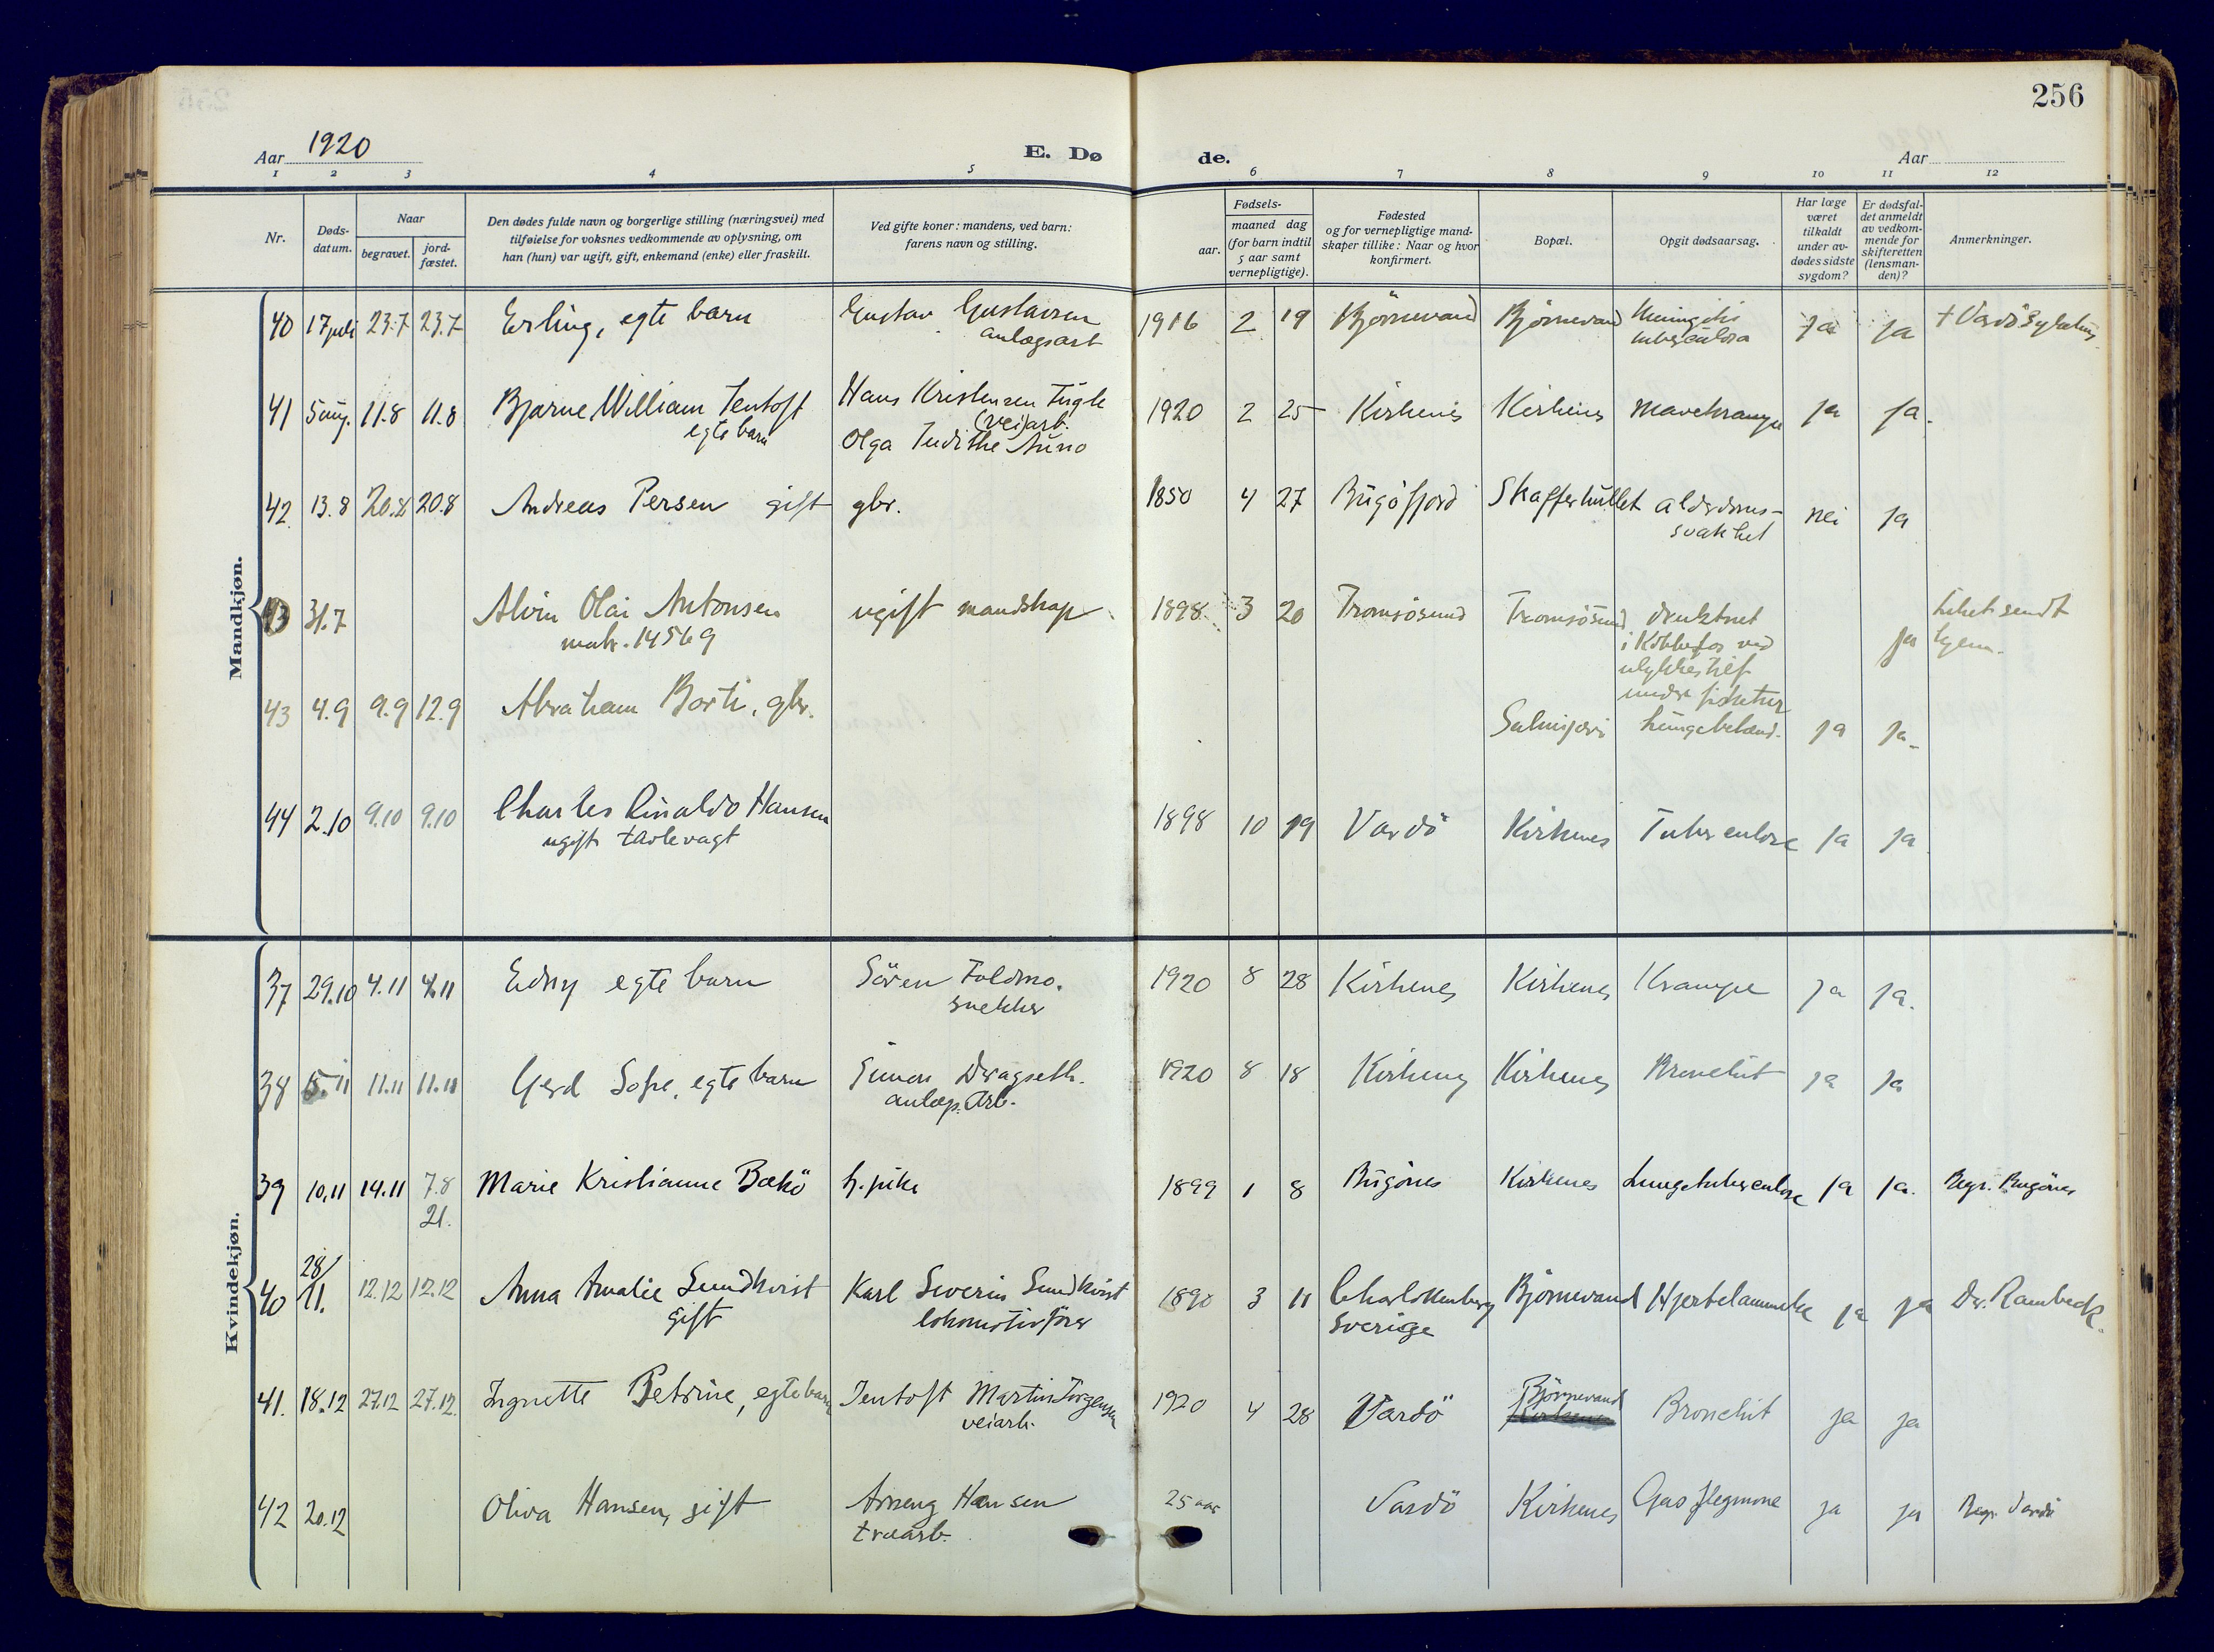 256
Aar 1920
E. Dø
de.
Aar
1 2 3 4 5 6 7 8 9 10 11 12
Nr.
Døds-
datum.
Naar
begravet.
jord-
fæstet.
Den dødes fulde navn og borgerlige stilling (næringsvei) med
tilføielse for voksnes vedkommende av oplysning, om
han (hun) var ugift, gift, enkemand (enke) eller fraskilt.
Ved gifte koner: mandens, ved barn:
farens navn og stilling.
Fødsels-
aar.
maaned dag
(for barn indtil
5 aar samt
vernepligtige).
Fødested
og for vernepligtige mand-
skaper tillike: Naar og hvor
konfirmert.
Bopæl.
Opgit dødsaarsag.
Har læge
været
tilkaldt
under av-
dødes sidste
sygdom?
Er dødsfal-
det anmeldt
av vedkom-
mende for
skifteretten
(lensman-
den)?
Anmerkninger.
Mandkjøn.
40 17 juli 23.7 23.7 Erling, egte barn Gustav Gustavsen 1916 2 19 Bjørnevand Bjørnevand Meningitis ja ja † Vardö Sykehus
anlægsarb tuberculosa
41 5 aug. 11.8 11.8 Bjarne William Jentoft Hans Kristensen 1920 2 25 Kirkenes Kirkenes Mavekrampe ja ja.
egte barn (vei)arb.
Olga Judithe
42. 13.8 20.8 20.8 Andreas Persen gift gbr. 1850 4 27 Bugöfjord Skafferhullet alderdoms-
svakhet nei ja
43 31.7 Alvin Olai Antonsen ugift mandskap 1898 3 20 Tromsösund Tromsösund druknet Liket sendt
matr. 14569 i Kobbefos ved ja hjem.
ulykkestilf.
under
43 4.9 9.9 12.9 Abraham Borti, gbr. Salmijervi ja ja.
44 2.10 9.10 9.10 Charles Rinaldo Hansen 1898 10 19 Vardö Kirkenes Tuberculose ja ja
ugift tavlevagt
Kvindekjøn.
37 29.10 4.11 4.11 Edny egte barn Sören Foldmo. 1920 8 28 Kirkenes Kirkenes Krampe ja ja.
snekker
38 5.11 11.11 11.11 Gerd Sofie, egte barn Simon Dragseth. 1920 8 18 Kirkenes Kirkenes Bronchit ja ja
anlægs. arb.
39 10.11 14.11 7.8 Marie Kristianne Bækö h.pike 1899 1 8 Bugönes Kirkenes Lungetuberculose ja ja. Begr. Bugönes
21.
40 28/11. 12.12 12.12 Anna Amalie Sundkvist Karl Severin Sundkvist 1890 3 11 Charlottenberg Bjørnevand Hjertelammelse ja ja Dr. Rambeck.
gift lokomotivfører Sverige
41. 18.12 27.12 27.12. Ingnette Petrine, egte barn Jentoft Martin Jörgensen 1920 4 28 Vardö Bjørnevand Bronchit ja ja
veiarb. Kirkenes
42 20.12 Oliva Hansen, gift Hansen 25 aar Vardö Kirkenes Gasflegmone ja ja Begr. Vardö
træarb.